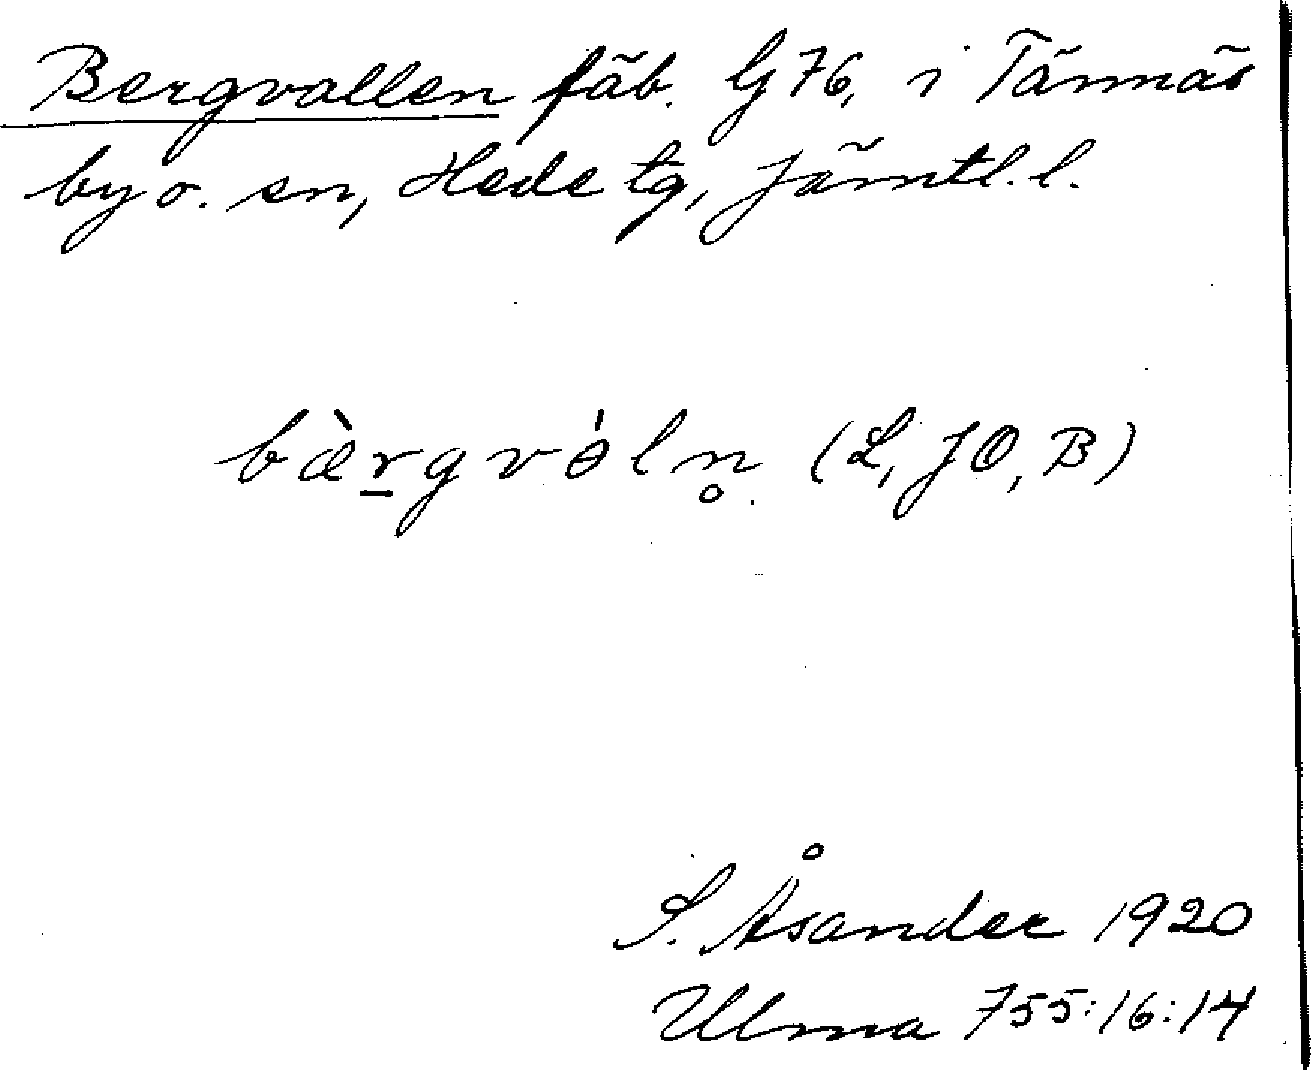 Bergvallen fäb. G 76, i Tännäs
by o. sn, Hede tg, Jämtl. l.
bæ̀r̲gvɵ́ln̥ (L, JO, B)
S. Åsander 1920
Ulma 755:16:14